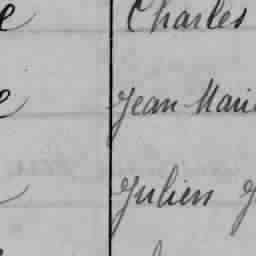 Charles
Jean Marie
Julien